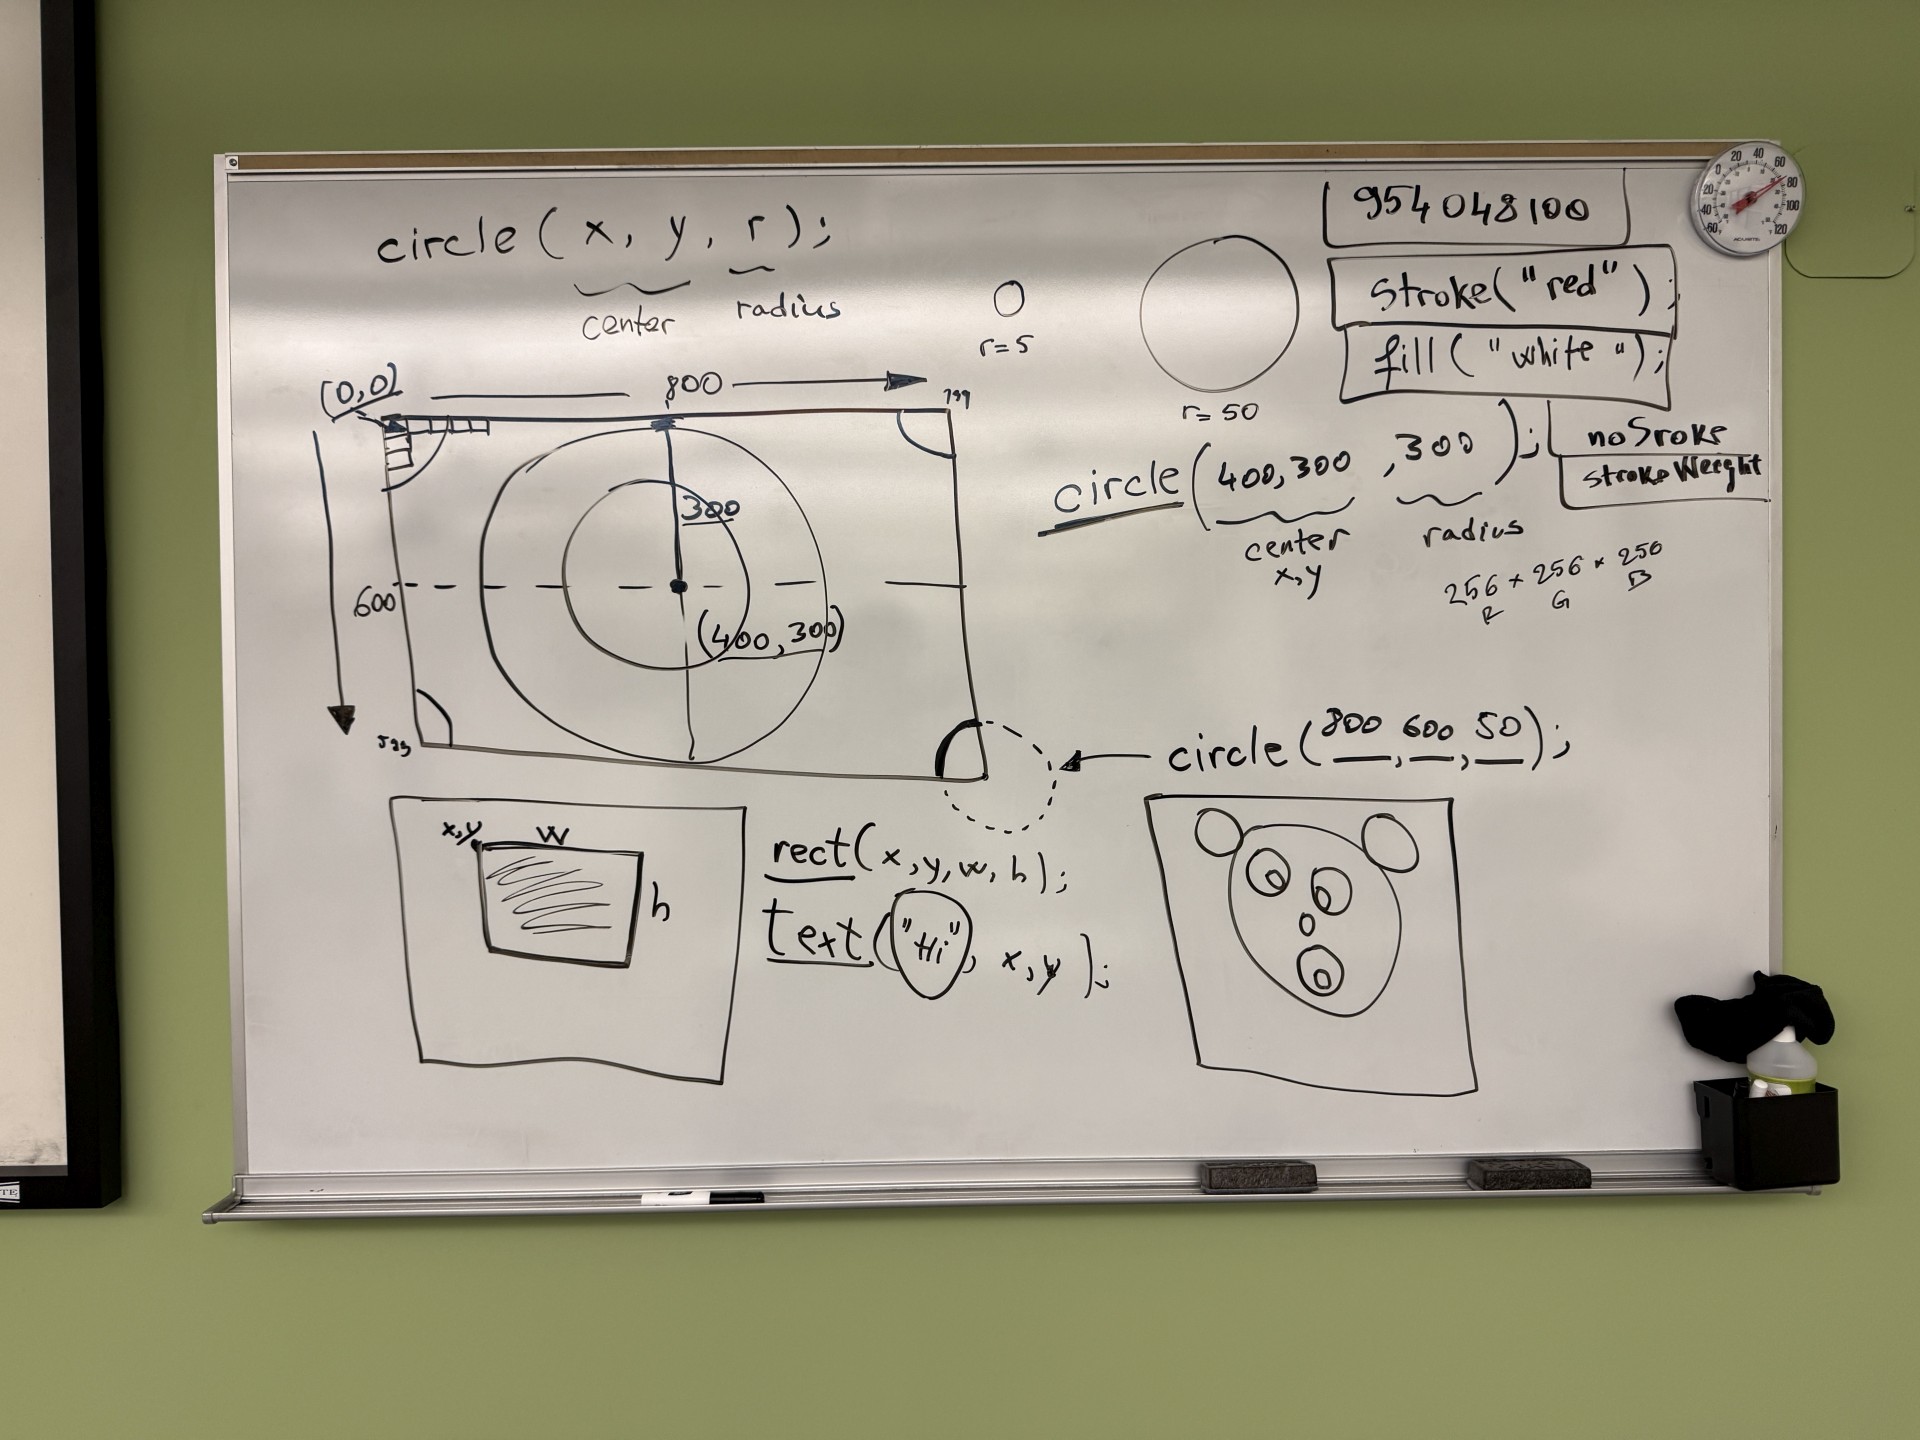 circle ( x, y, r );
center
radius
r=5
r= 50
954048100
stroke("red");
fill("white");
noSroke
strokeWeight
(0,0)
800
799
300
(400,300)
600
599
circle(400,300,300);
center
x,y
radius
256 * 256 * 256
R G B
circle(800,600,50);
x,y
w
h
rect(x,y,w,h);
text("Hi", x,y);
0 20 40 60 80 100 120
-20
-40
-60
ACURITE
TE